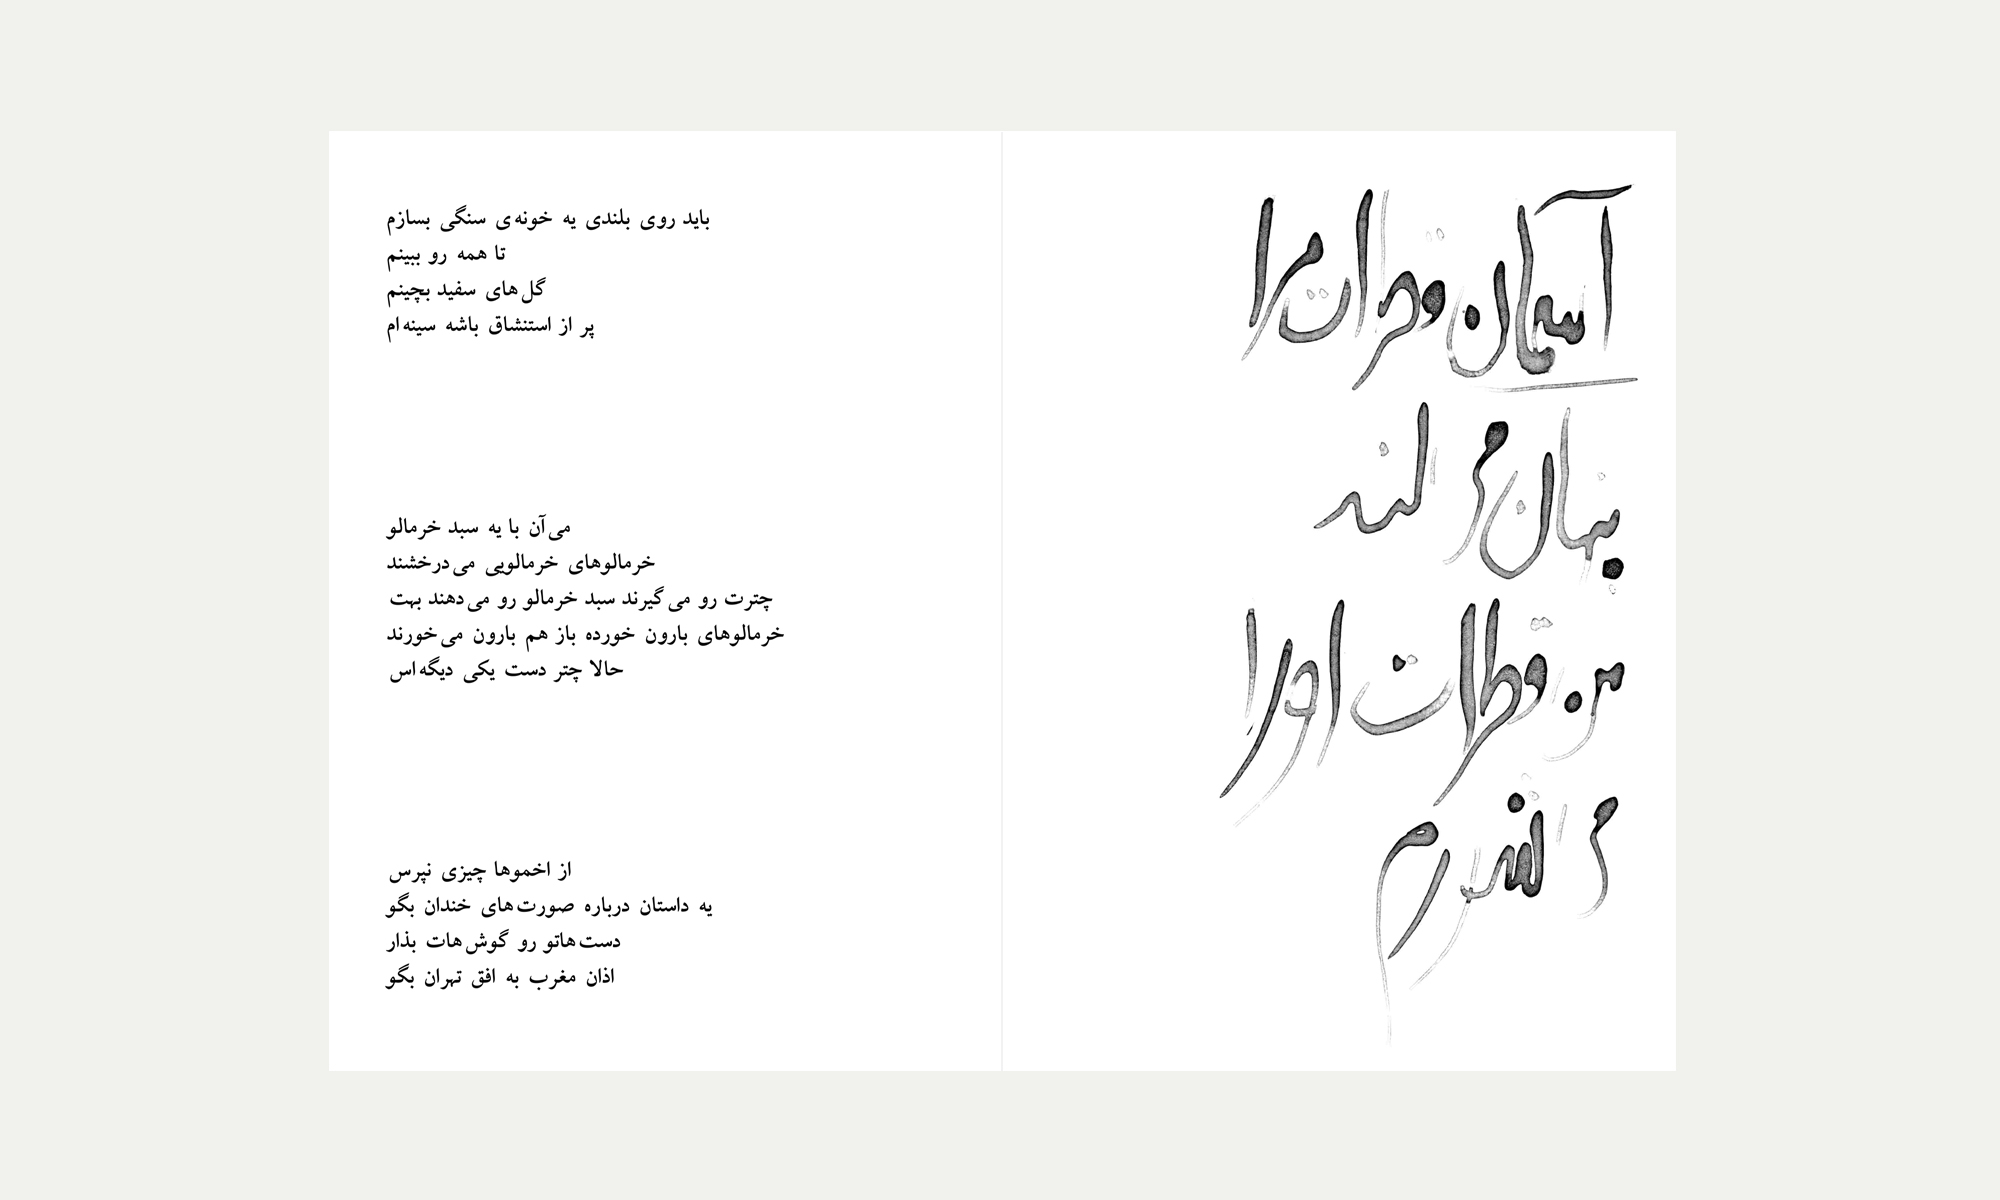 آسمان قطرات مرا
پنهان می کند
من قطرات او را
می
باید روی بلندی یه خونه‌ی سنگی بسازم
تا همه رو ببینم
گل‌های سفید بچینم
پر از استنشاق باشه سینه‌ام
می‌آن با یه سبد خرمالو
خرمالوهای خرمالویی می‌درخشند
چترت رو می‌گیرند سبد خرمالو رو می‌دهند بهت
خرمالوهای بارون خورده باز هم بارون می‌خورند
حالا چتر دست یکی دیگه‌اس
از اخموها چیزی نپرس
یه داستان درباره صورت‌های خندان بگو
دست‌هاتو رو گوش‌هات بذار
اذان مغرب به افق تهران بگو